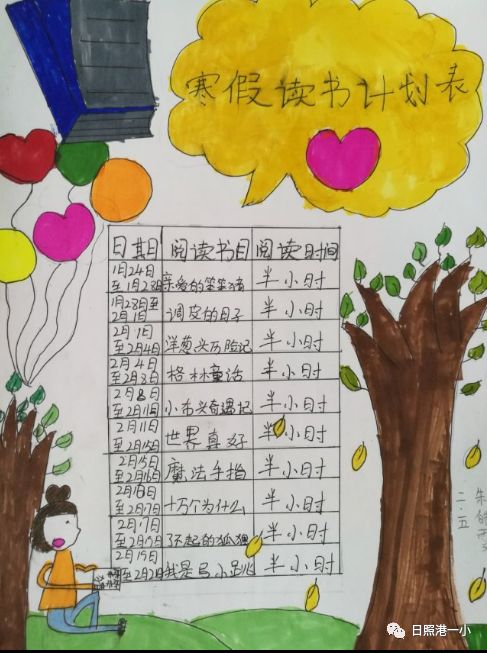 寒假读书计划表
日期 阅读书目 阅读时间
1月24日
至1月28日 亲爱的笨笨猪 半小时
1月28日至
2月1日 调皮的日子 半小时
2月1日
至2月4日 洋葱头历险记 半小时
2月4日
至2月8日 格林童话 半小时
2月8日
至2月11日 小布头奇遇记 半小时
2月11日
至2月15日 世界真好 半小时
2月15日
至2月16日 魔法手指 半小时
至2月7日 十万个为什么 半小时
2月7日
了不起的狐狸 半小时
2月15日
我是马小跳 半小时
二.五
日照港一小